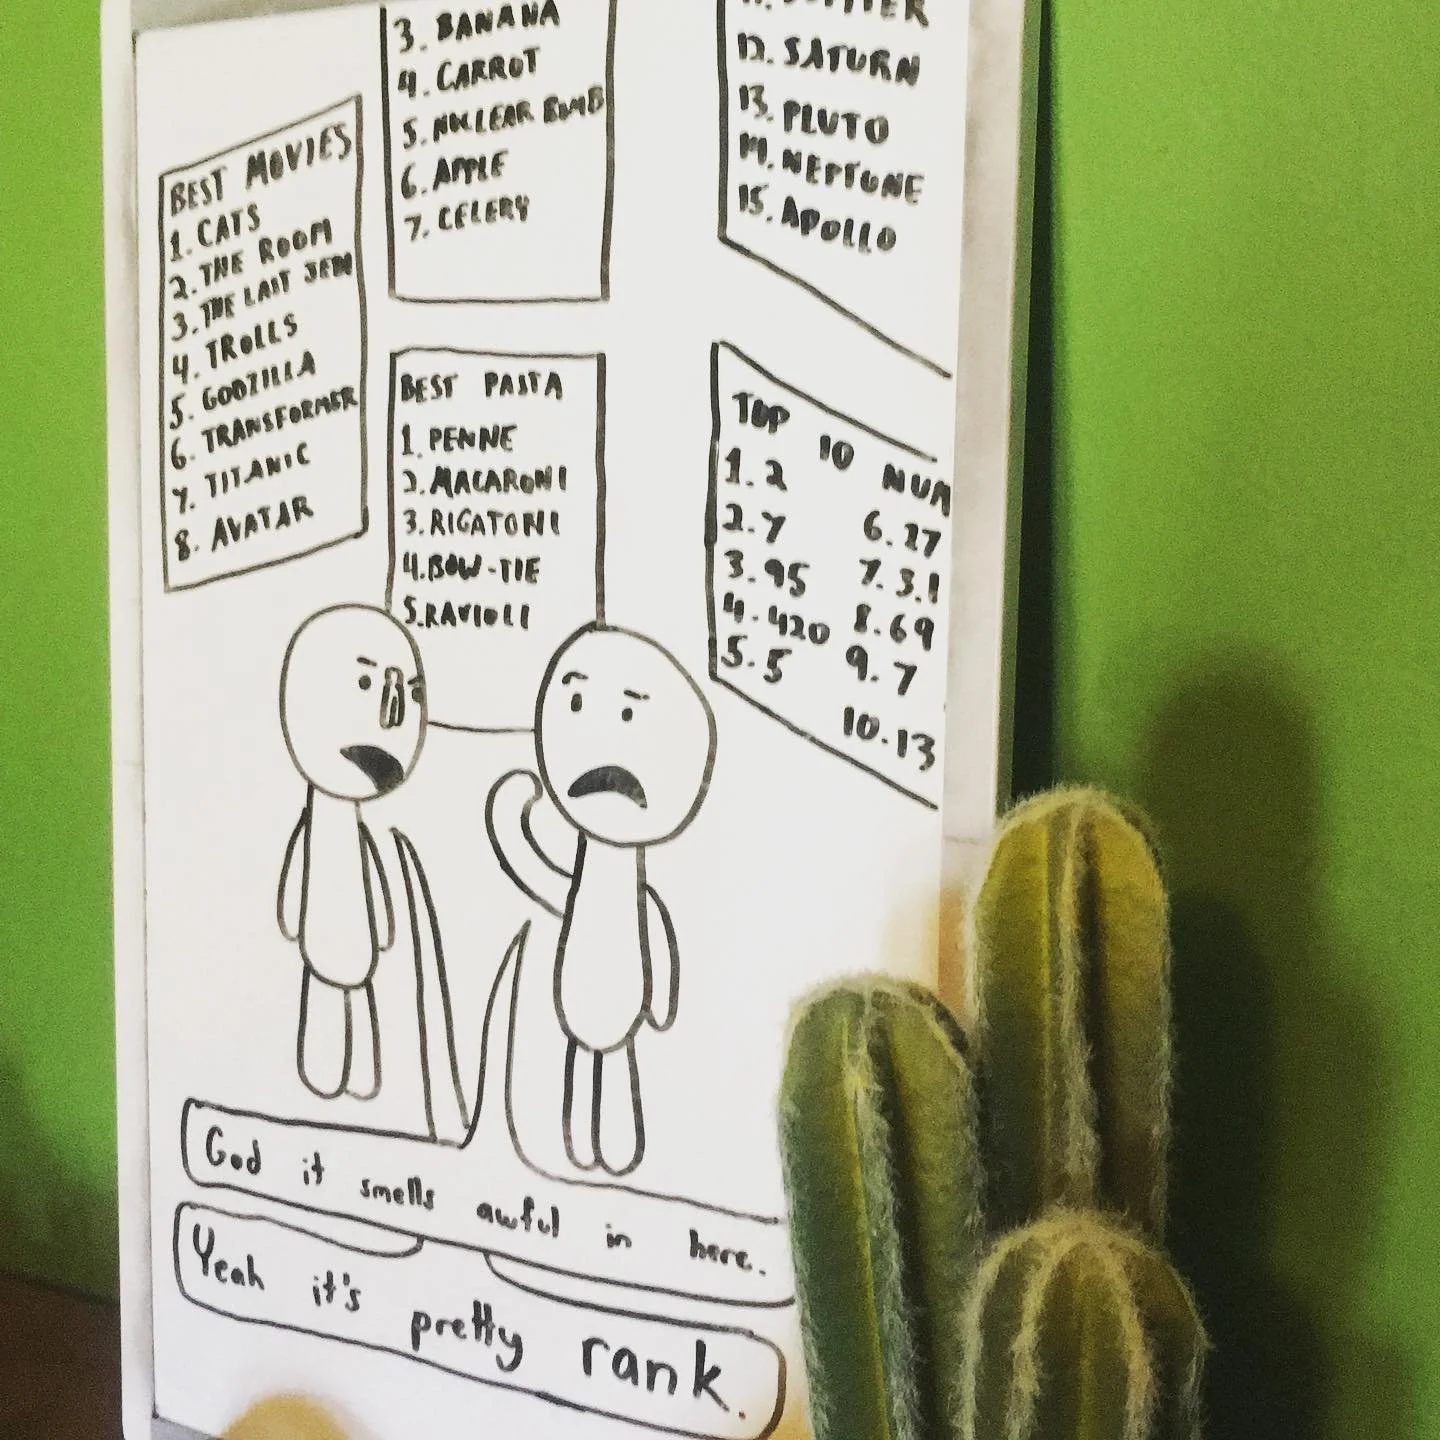 BEST MOVIES
1. CATS
2. THE ROOM
3. THE LAST JEDI
4. TROLLS
5. GODZILLA
6. TRANSFORMER
7. TITANIC
8. AVATAR
3. BANANA
4. CARROT
5. NUCLEAR BOMB
6. APPLE
7. CELERY
BEST PASTA
1. PENNE
2. MACARONI
3. RIGATONI
4. BOW-TIE
5. RAVIOLI
12. SATURN
13. PLUTO
14. NEPTUNE
15. APOLLO
TOP 10 NUM
1. 2
2. 7
3. 95
4. 420
5. 5
6. 27
7. 3.1
8. 69
9. 7
10. 13
God it smells awful in here.
Yeah it's pretty rank.